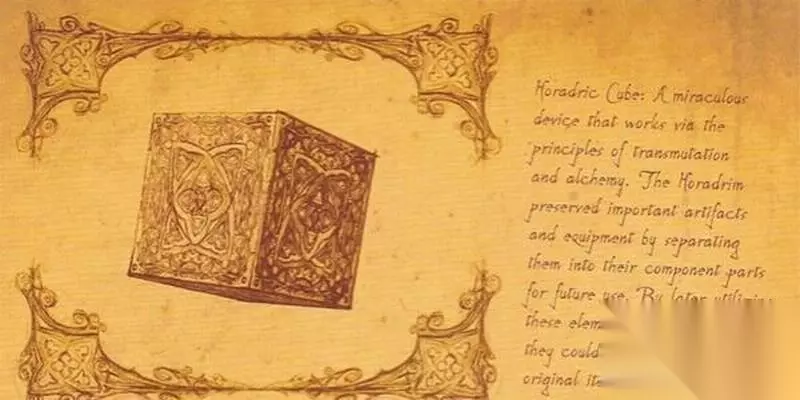 Horadric Cube: A miraculous
device that works via the
principles of transmutation
and alchemy. The Horadrim
preserved important artifacts
and equipment by separating
them into their component parts
for future use. By later utilizing
these
they could
original